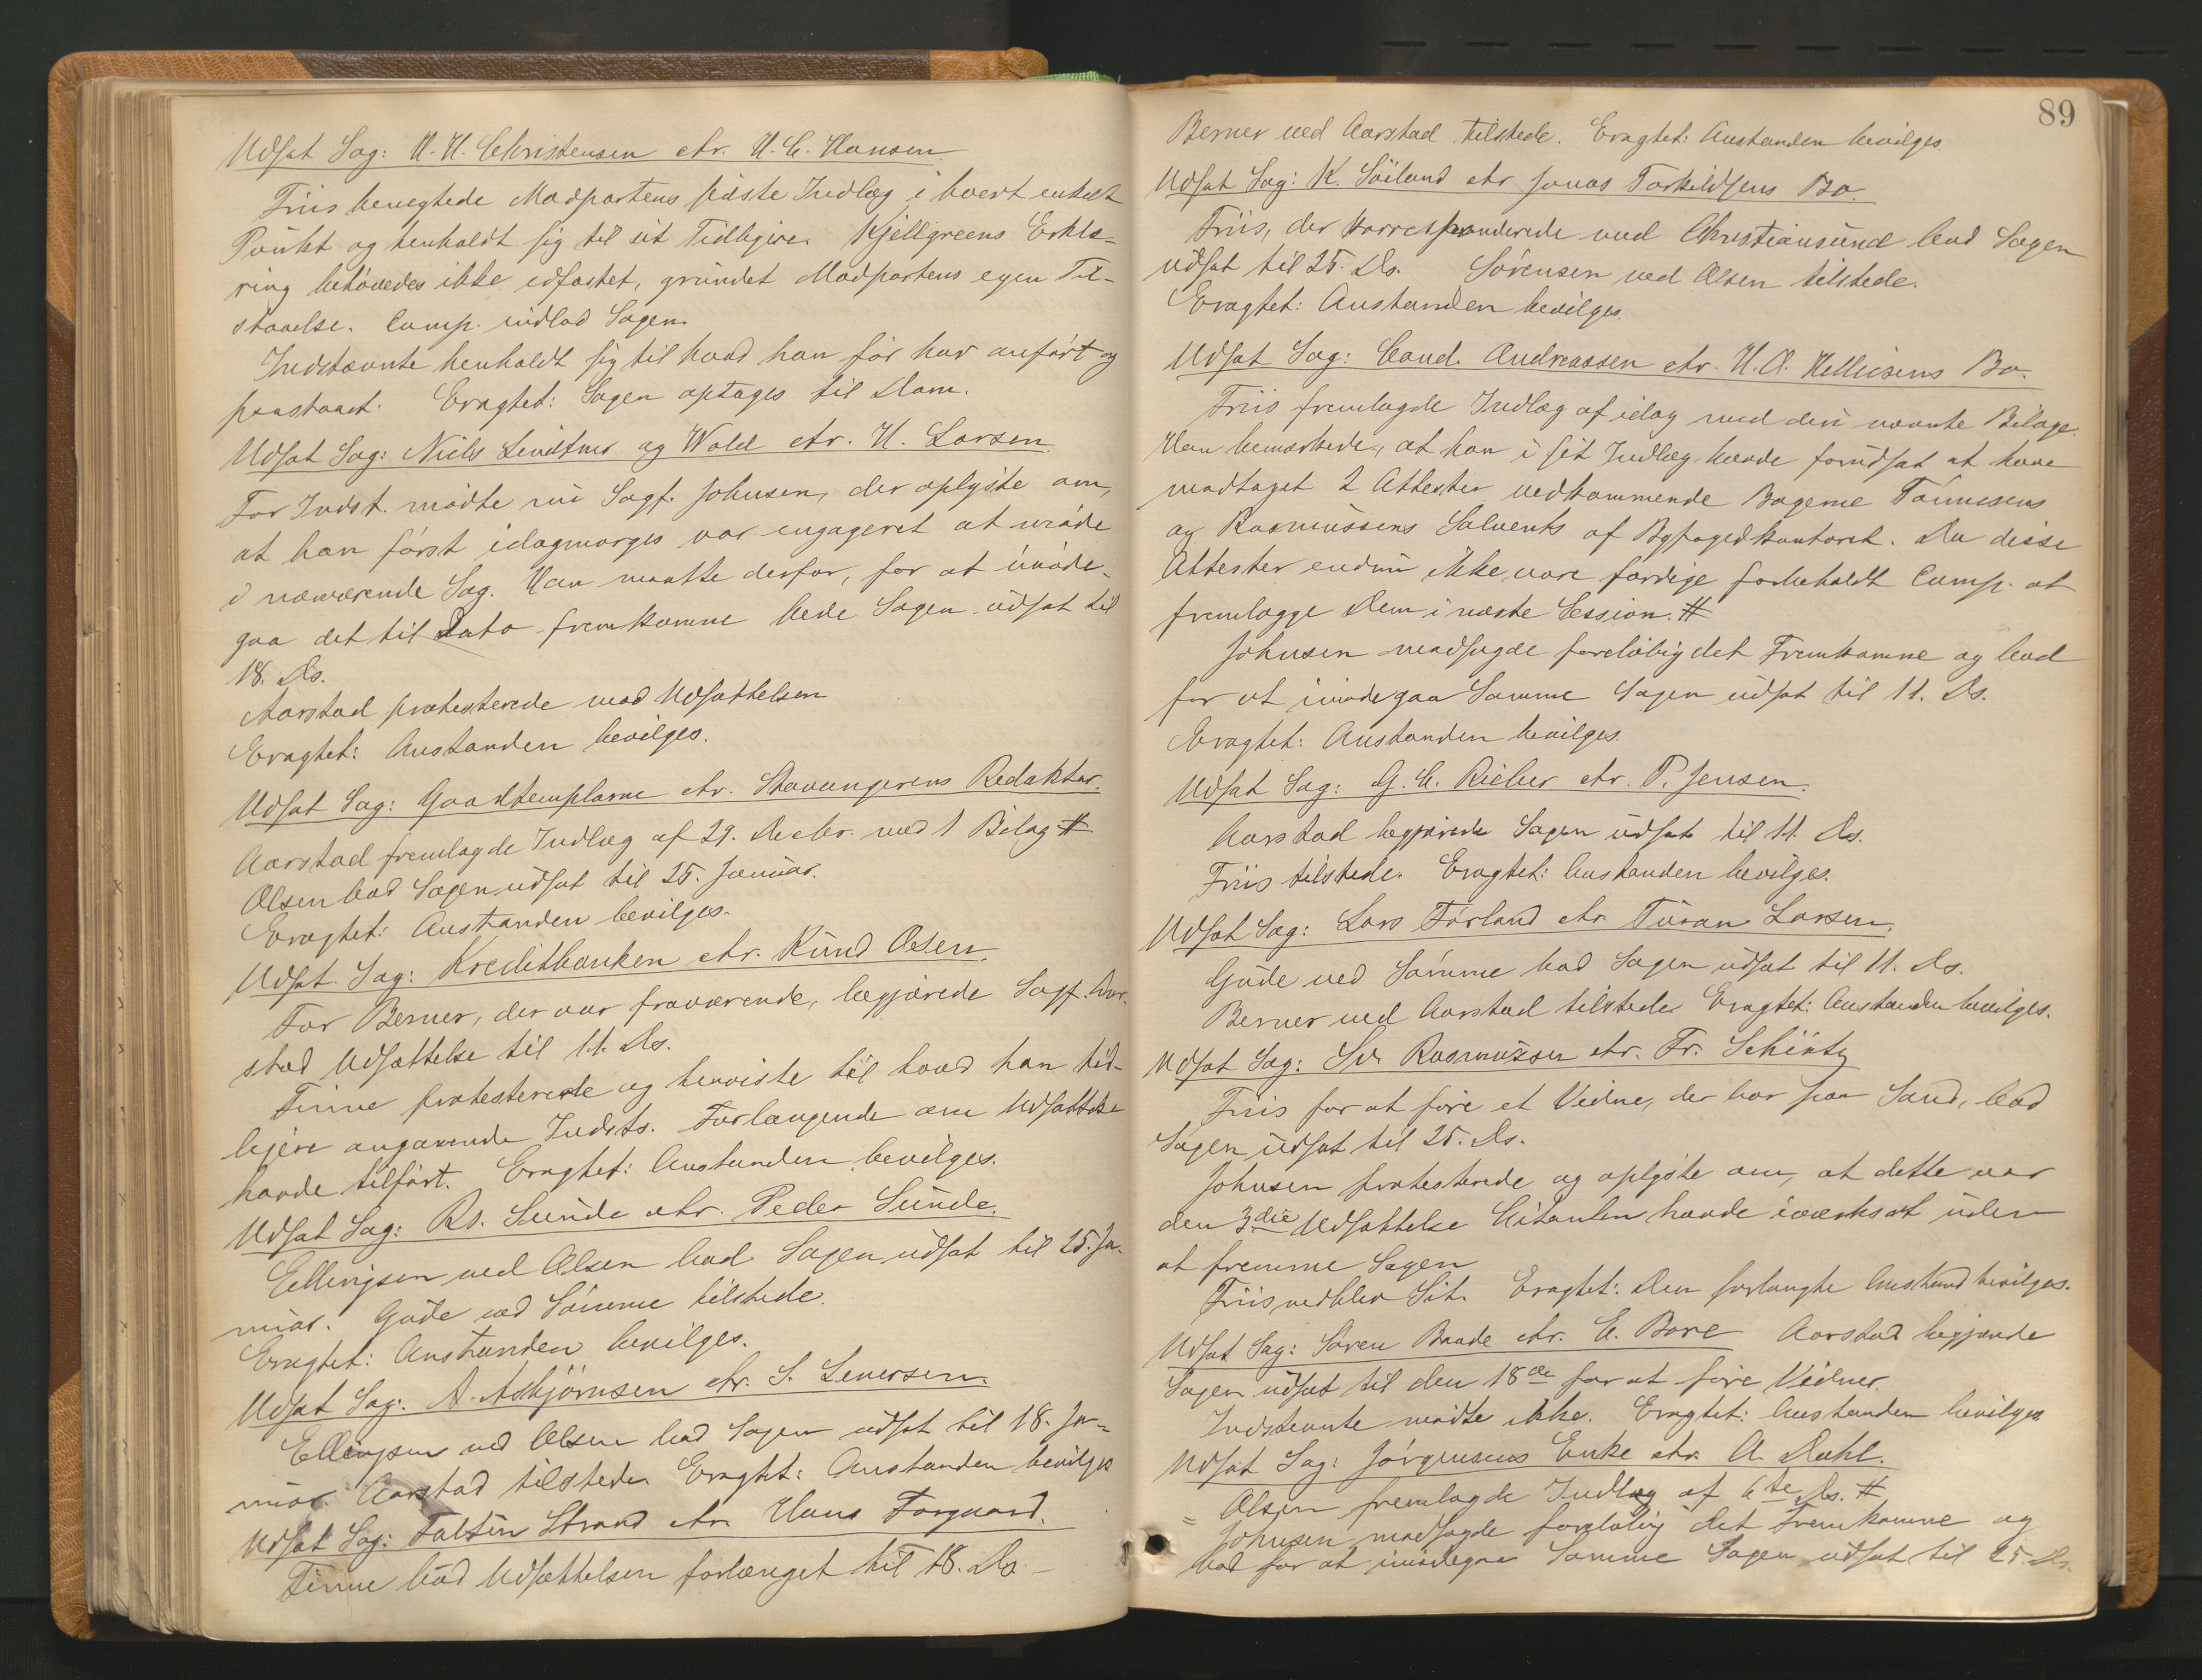 Udsat Sag: H. H. Christensen ctr. H. C. Hansen.
Friis benegtede Modpartens sidste Indlæg i hvert enkelt
Punkt og henholdt sig til sit Tidligere. Kjellgreens Erklæ-
ring behøvedes ikke edfæstet, grundet Modpartens egen Til-
staaelse. Comp. indlod Sagen.
Indstævnte henholdt sig til hvad han før har anført og
paastaaet. Eragtet: Sagen optages til Dom.
Udsat Sag: Niels Lindtner og Wold ctr. H. Larsen
For Indst. mødte nu Sagf. Johnsen, der oplyste om,
at han først idagmorges var engageret at møde
i nærværende Sag. Han maatte derfor, for at imøde-
gaa det til Dato fremkomne bede Sagen udsat til
18. Ds.
Aarstad protesterede mod Udsættelsen
Eragtet: Anstanden bevilges.
Udsat Sag: Goodtemplarne ctr. Stavangerens Redaktør.
Aarstad fremlagde Indlæg af 29. Decbr. med 1 Bilag #
Olsen bad Sagen udsat til 25. Januar.
Eragtet: Anstanden bevilges.
Udsat Sag: Kreditbanken ctr. Knud Olsen.
For Berner, der var fraværende, begjærede Sagf. Aar-
stad Udsættelse til 11. Ds.
Finne protesterede og henviste til hvad han tid-
ligere angaaende Indsts. Forlangende om Udsættelse
havde tilført. Eragtet: Anstanden bevilges.
Udsat Sag: Rs. Sunde ctr. Peder Sunde.
Ellingsen ved Olsen bad Sagen udsat til 25. Ja-
nuar. Gude ved Sømme tilstede.
Eragtet: Anstanden bevilges.
Udsat Sag: A. Asbjørnsen ctr. S. Seversen.
Ellingsen ved Olsen bad Sagen udsat til 18. Ja-
nuar. Aarstad tilstede. Eragtet: Anstanden bevilges
Udsat Sag: Faltin Strand ctr. Hans Torgaard.
Finne bad Udsættelsen forlænget til 18. Ds.
89
Berner ved Aarstad tilstede. Eragtet: Anstanden bevilges.
Udsat Sag: K. Søiland ctr Jonas Torkildsens Bo.
Friis, der korresponderede med Christiansund bad Sagen
udsat til 25. Ds. Sørensen ved Olsen tilstede.
Eragtet: Anstanden bevilges.
Udsat Sag: Cand. Andreassen ctr. H. A. Helliesens Bo.
Friis fremlagde Indlæg af idag med deri nævnte Bilage.
Han bemærkede, at han i sit Indlæg havde forudsat at have
modtaget 2 Attester vedkommende Bagerne Tønnesens
og Rasmussens Solvents af Byfogedkontoret. Da disse
Attester endnu ikke vare færdige forbeholdt Comp. at
fremlægge dem i næste Session. #
Johnsen modsagde foreløbig det Fremkomne og bad
for at imødegaa Samme Sagen udsat til 11. Ds.
Eragtet: Anstanden bevilges.
Udsat Sag: G. C. Rieber ctr. P. Jensen.
Aarstad begjærede Sagen udsat til 11. Ds.
Friis tilstede. Eragtet: Anstanden bevilges.
Udsat Sag: Lars Førland ctr. Turan Larsen.
Gude ved Sømme bad Sagen udsat til 11. Ds.
Berner ved Aarstad tilstede. Eragtet: Anstanden bevilges.
Udsat Sag: Sv. Rasmussen ctr. Fr. Schiøtz
Friis for at føre et Vidne, der bor paa Sand, bad
Sagen udsat til 25. Ds.
Johnsen protesterede og oplyste om, at dette var
den 3die Udsættelse Citanten havde iværksat uden
at fremme Sagen
Friis vedblev Sit. Eragtet: Den forlangte Anstand bevilges.
Udsat Sag: Søren Baade ctr. E. Bore Aarstad begjærede
Sagen udsat til den 18de for at føre Vidner.
Indstævnte mødte ikke. Eragtet: Anstanden bevilges
Udsat Sag: Jørgensens Enke ctr. A. Dahl.
Olsen fremlagde Indlæg af 6te Ds. #
Johnsen modsagde foreløbig det Fremkomne og
bad for at imødegaa Samme Sagen udsat til 25. Ds.